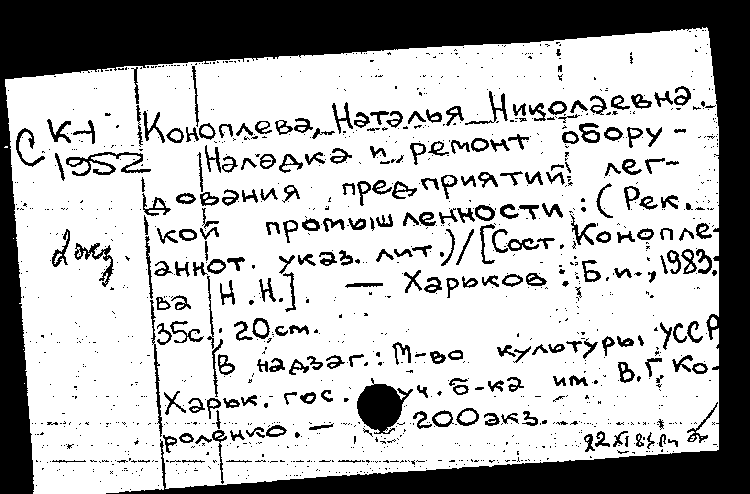 С К-1
1952
Коноплева, Наталья Николаевна.
Наладка и ремонт обору-
дования предприятий лег-
кой промышленности : (Рек.
аннот. указ. лит.) / [Сост. Конопле-
ва Н.Н.]. — Харьков : Б.и., 1983.
35с.; 20см.
2 экз.
В надзаг.: М-во культуры УССР,
Харьк. гос. уч. б-ка им. В.Г. Ко-
роленко. — 200 экз.